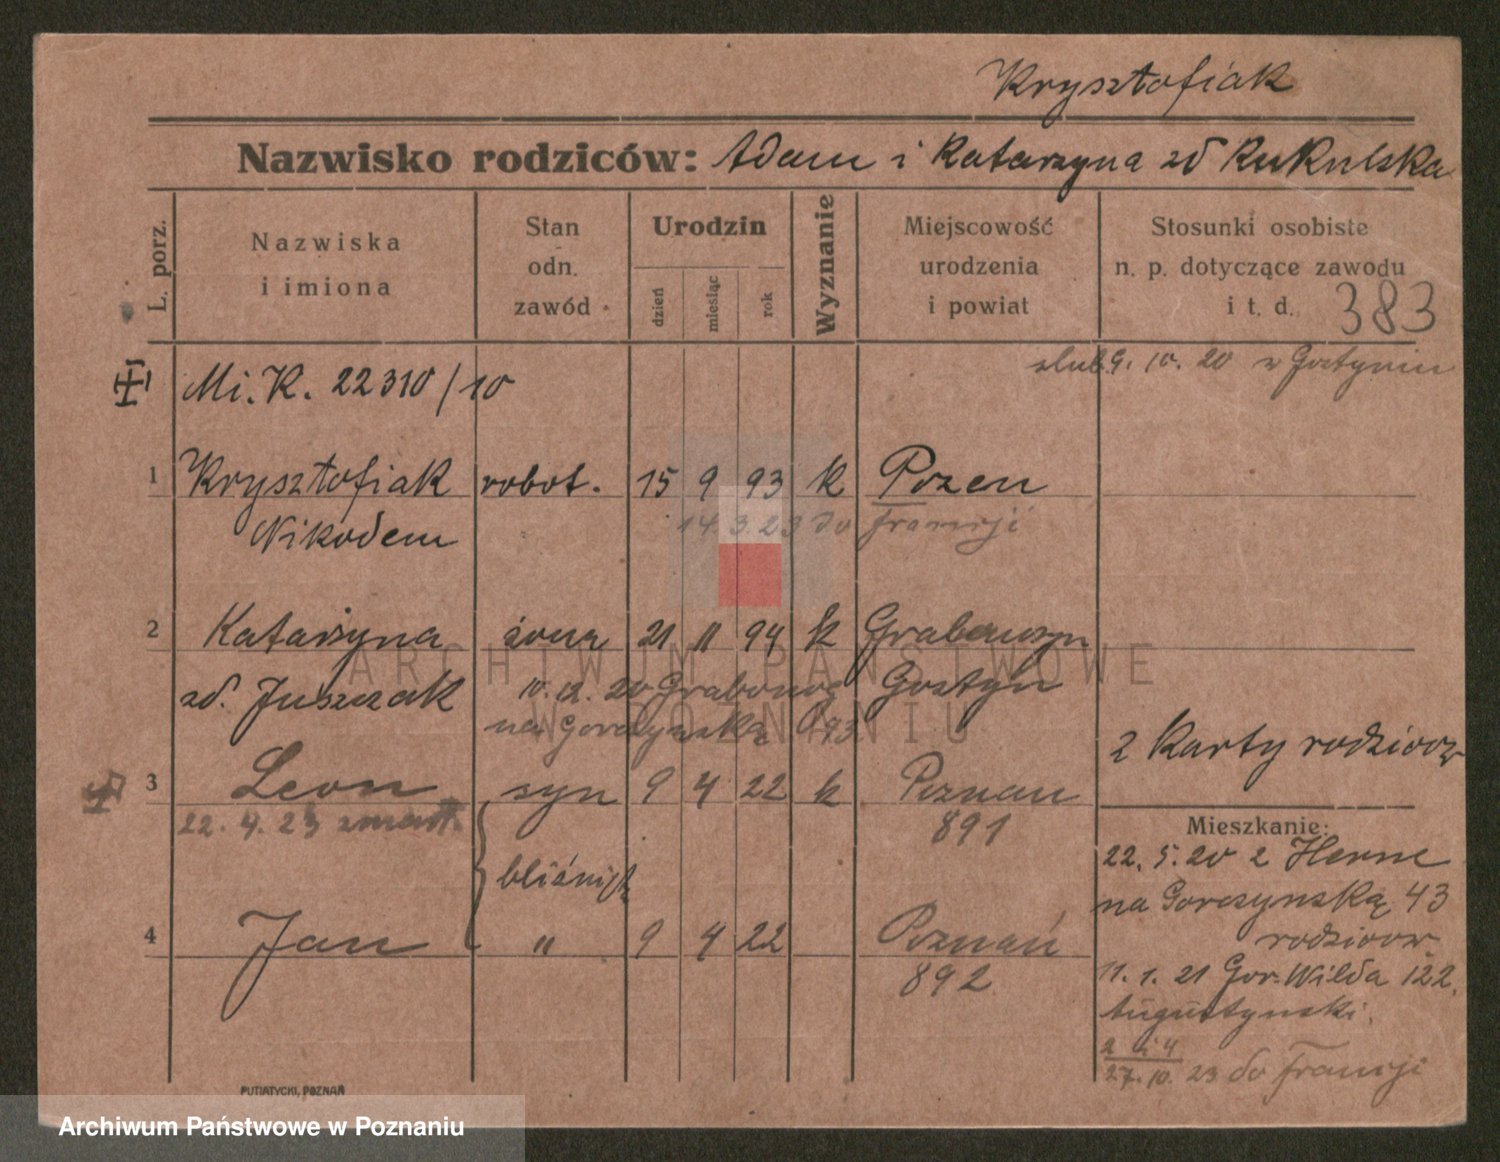 Krysztofiak
Nazwisko rodziców: Adam i Katarzyna zd Kukulska
L. porz.
Nazwiska
i imiona
Stan
odn.
zawód
Urodzin
dzień
miesiąc
rok
Wyznanie
Miejscowość
urodzenia
i powiat
Stosunki osobiste
n. p. dotyczące zawodu
i t. d. 383
ślub 9. 10. 20 w Gostyniu
Mi. K. 22310/10
1 Krysztofiak robot. 15 9 93 k Pozen
Nikodem 14 3. 23 do Francji
2 Katarzyna żona 21 11 94 k
zd. Juszczak 10. 12. 20 Grabonog Gostyń
na Gorczynską
2 Karty rodziców
3 Leon syn 9 4 22 k Poznan
22. 4. 23 zmarł. 891
bliźnięta
4 Jan " 9 4 22 Poznań
892
Mieszkanie:
22. 5. 20 z Herne
na Gorczynską 43
rodziców
11. 1. 21 Gor. Wilda 122.
Augustynski.
2 i 4
27. 10. 23 do Francji
PUTIATYCKI, POZNAŃ
ARCHIWUM PAŃSTWOWE
W POZNANIU
Archiwum Państwowe w Poznaniu